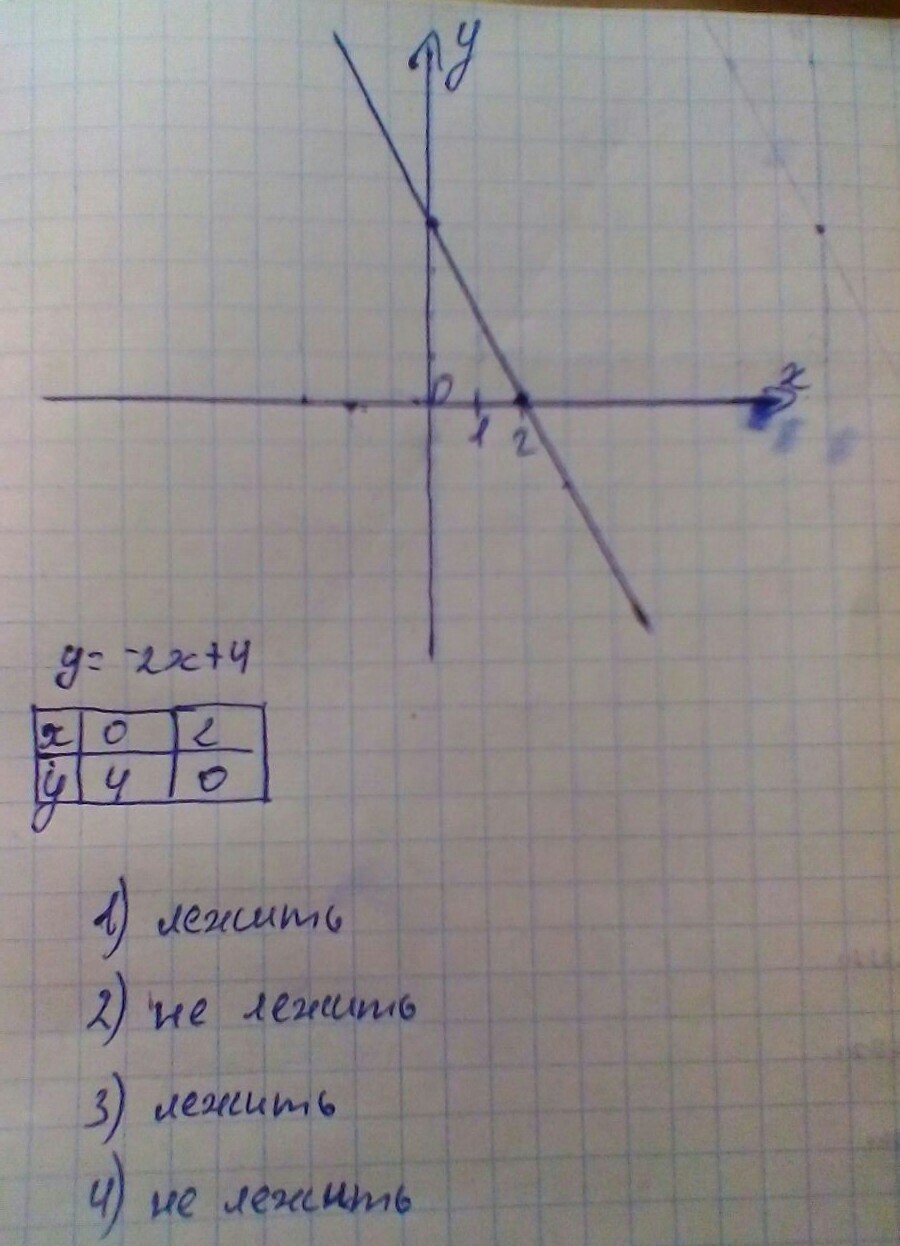 y
x
0
1 2
y = -2x+4
x 0 2
y 4 0
1) лежить
2) не лежить
3) лежить
4) не лежить